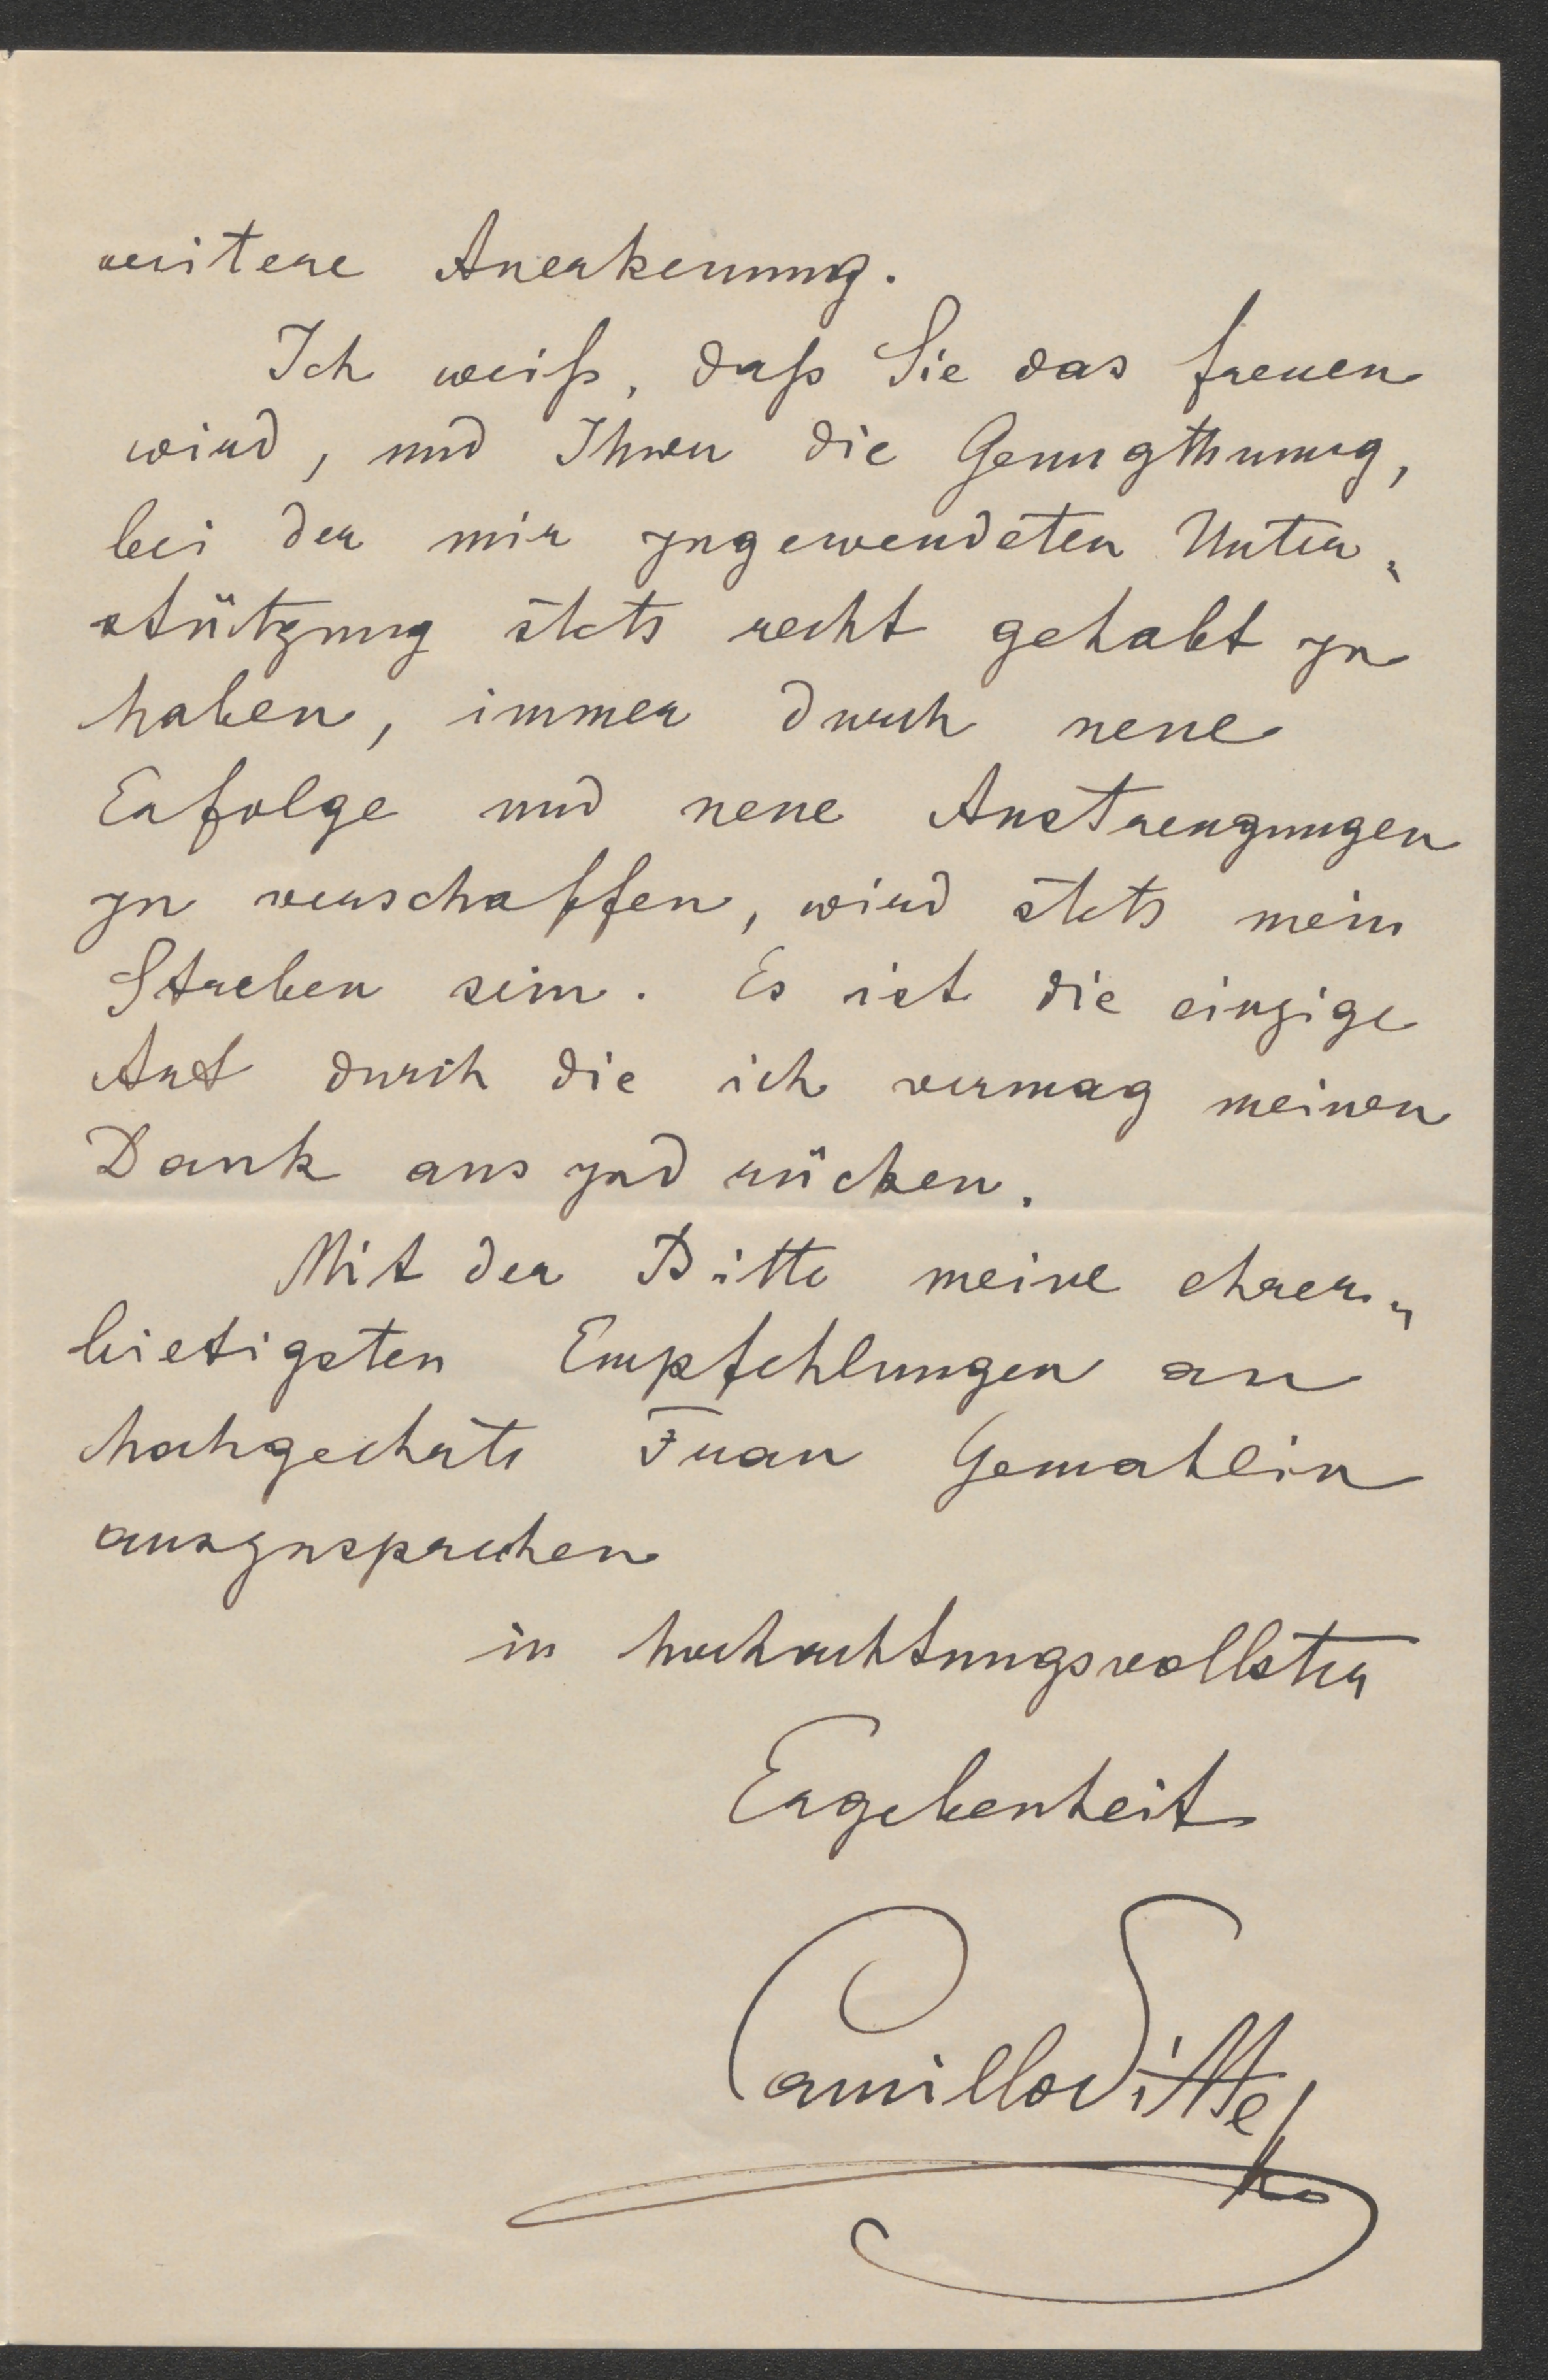 weitere Anerkennung.
Ich weiß, daß Sie das freuen
wird, und Ihnen die Genugthuung,
bei der mir zugewendeten Unter„
stützung stets recht gehabt zu
haben, immer durch neue
Erfolge und neue Anstrengungen
zu verschaffen, wird stets mein
Streben sein. Es ist die einzige
Art durch die ich vermag meinen
Dank auszudrücken.
Mit der Bitte meine ehrer„
bietigsten Empfehlungen an
hochgeehrte Frau Gemahlin
auszusprechen
in hochachtungsvollster
Ergebenheit
Camillo Sitte